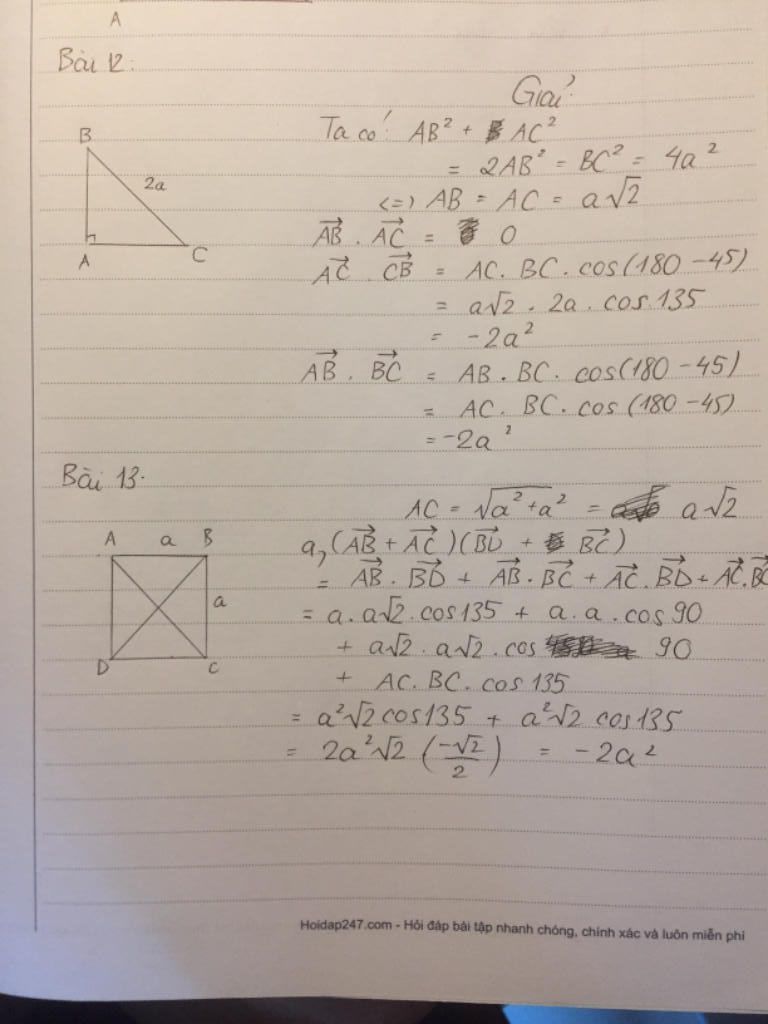 A
Bài 12:
Giải:
B
2a
A
C
Ta có: AB² + AC²
= 2AB² = BC² = 4a²
<=> AB = AC = a√2
AB⃗ . AC⃗ = 0
AC⃗ . CB⃗ = AC. BC. cos(180 - 45)
= a√2 . 2a . cos 135
= -2a²
AB⃗ . BC⃗ = AB . BC . cos(180 - 45)
= AC. BC. cos (180 - 45)
= -2a²
Bài 13.
A a B
a
D C
AC = √(a² + a²) = a√2
a, (AB⃗ + AC⃗)(BD⃗ + BC⃗)
= AB⃗ . BD⃗ + AB⃗ . BC⃗ + AC⃗ . BD⃗ + AC⃗.BC⃗
= a. a√2 . cos 135 + a. a. cos 90
+ a√2 . a√2 . cos 90
+ AC. BC. cos 135
= a²√2 cos 135 + a²√2 cos 135
= 2a²√2 (-√2/2) = -2a²
Hoidap247.com - Hỏi đáp bài tập nhanh chóng, chính xác và luôn miễn phí